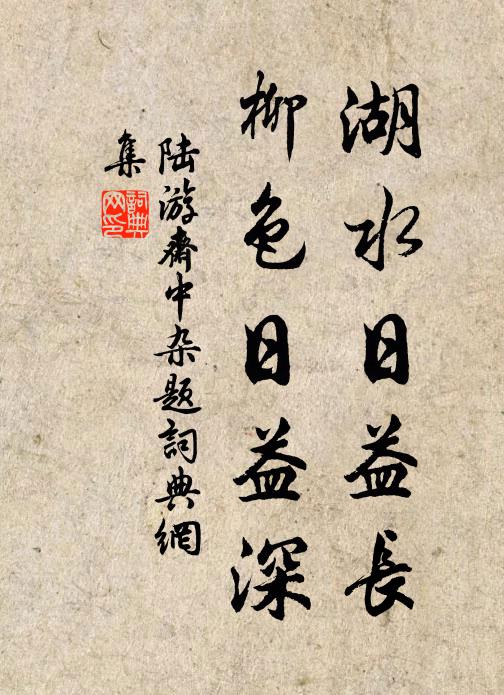 湖水日益長
柳色日益深
陆游斋中杂题詞典網
集
詞典
网印